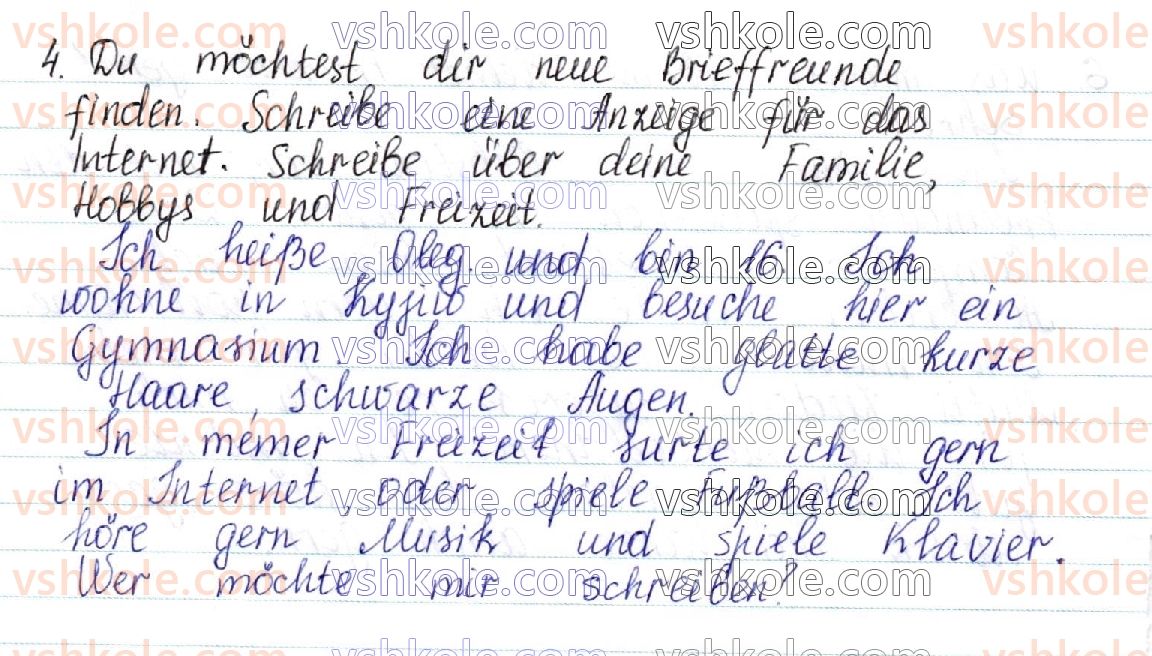 4. Du möchtest dir neue Brieffreunde
finden. Schreibe eine Anzeige für das
Internet. Schreibe über deine Familie,
Hobbys und Freizeit.
Ich heiße Oleg und bin 16. Ich
wohne in Kyjiw und besuche hier ein
Gymnasium. Ich habe glatte kurze
Haare, schwarze Augen.
In meiner Freizeit surte ich gern
im Internet oder spiele Fußball. Ich
höre gern Musik und spiele Klavier.
Wer möchte mir schreiben?